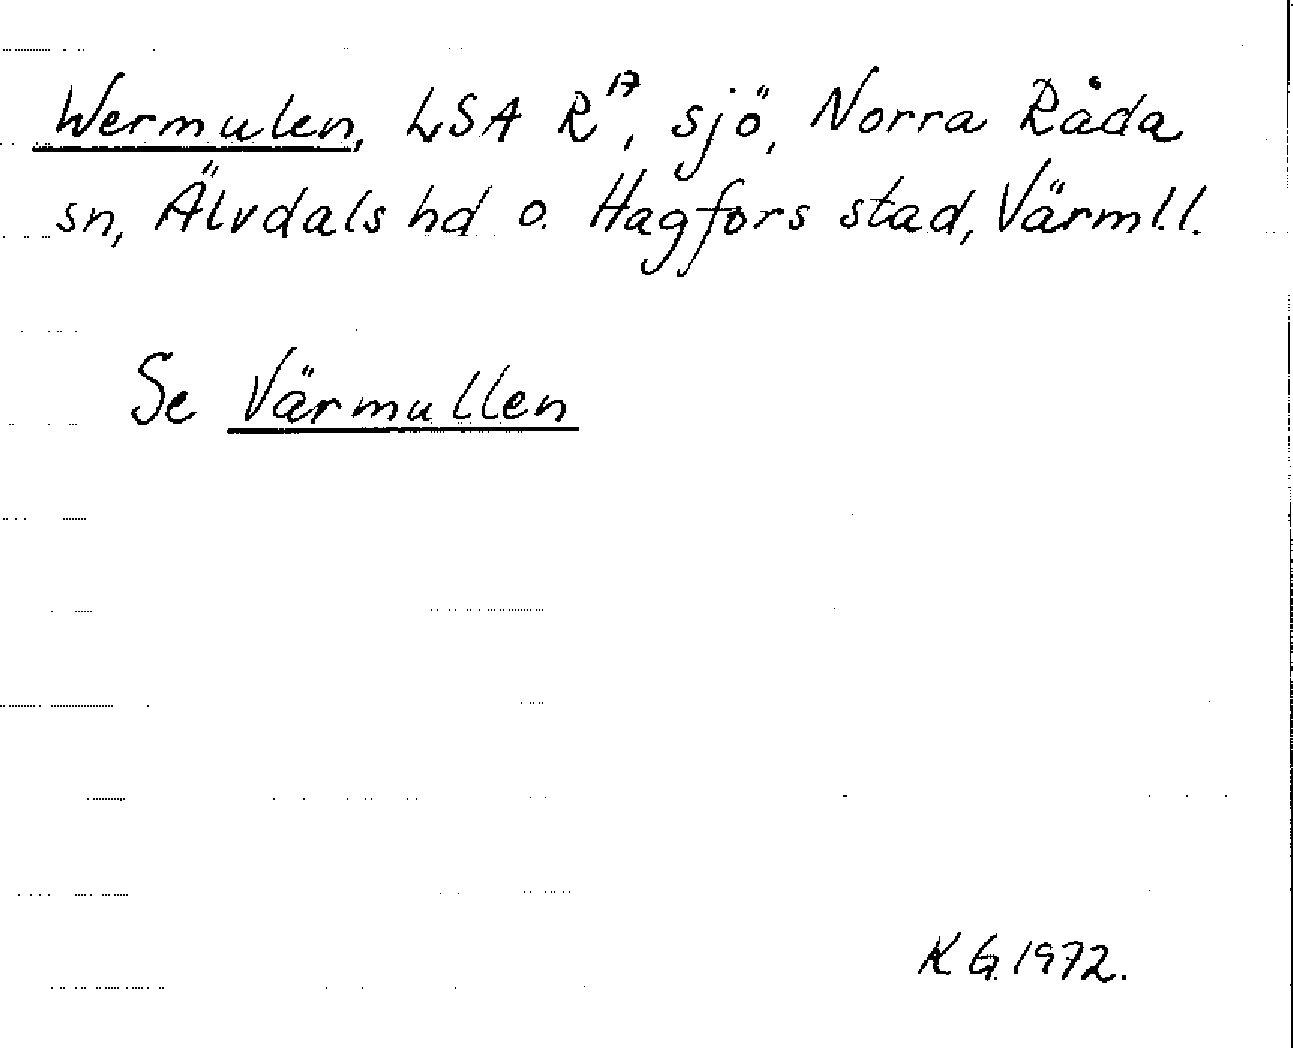 Wermulen, LSA R^A, sjö, Norra Råda
sn, Älvdals hd o. Hagfors stad, Värml.l.
Se Värmullen
KG. 1972.